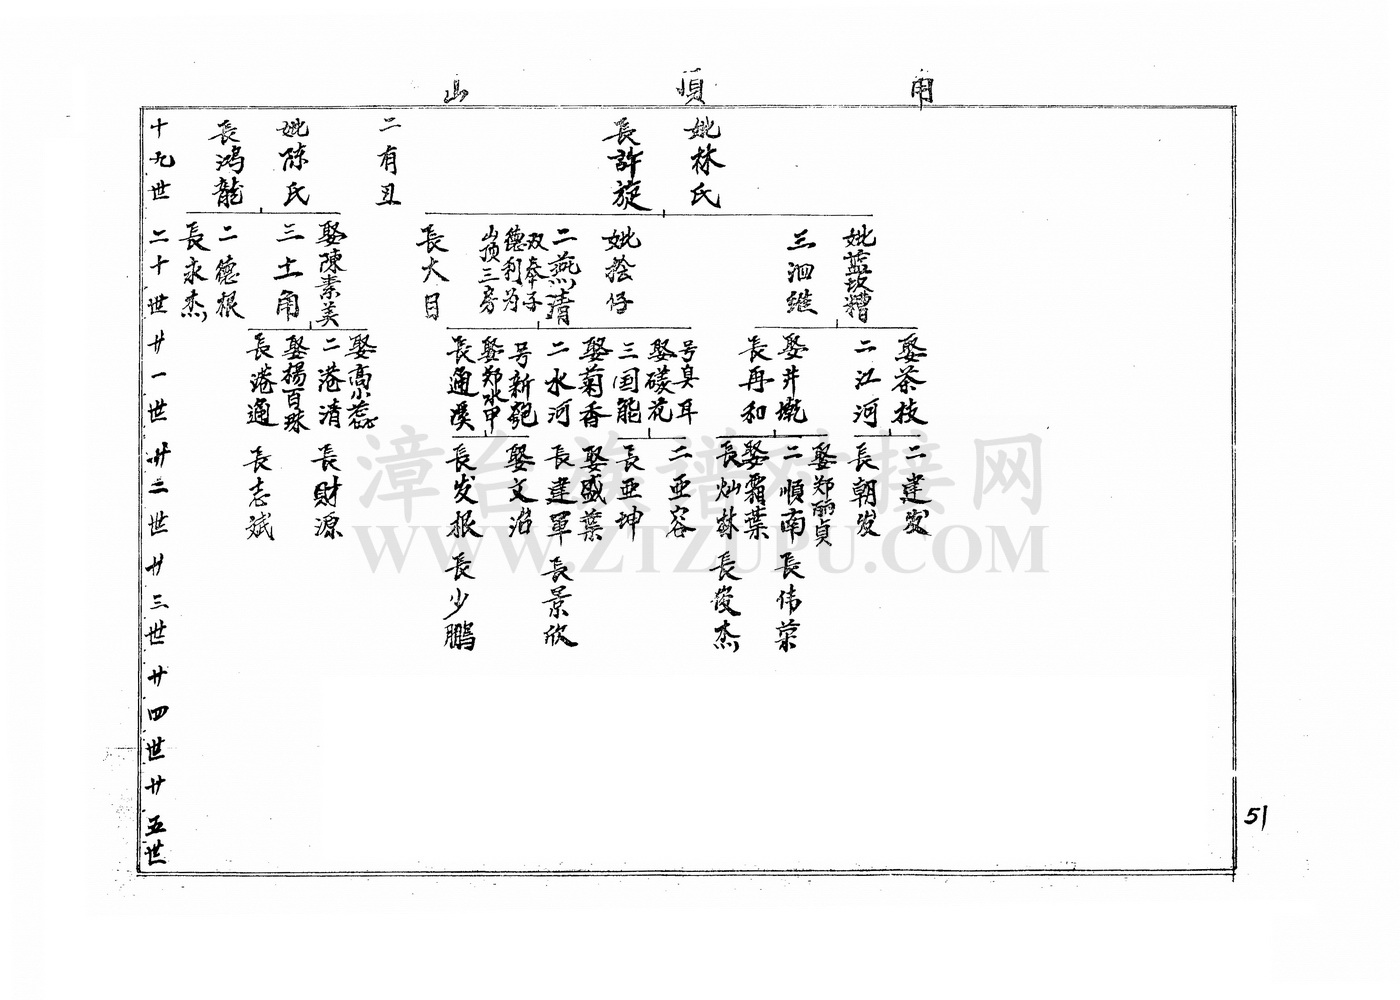 山頂角
十九世
長鴻龍
妣陈氏
二有丑
長許旋
妣林氏
二十世
長永杰
二德根
三土角
娶陳素美
長大目
山顶三房
德利为
双奉子
二燕清
妣捦仔
三泗継
妣藍坂糟
廿一世
長港通
娶楊百珠
二港清
娶高小惹
長通溪
娶郑水甲
号新匏
二水河
娶菊香
三国能
娶礞花
号臭耳
長再和
娶井墘
二江河
娶茶枝
廿二世
長志斌
長財源
長发根
娶文治
長建軍
娶盛葉
長亜坤
二亜容
長灿林
娶霜葉
二順南
娶郑丽贞
長朝发
二建发
廿三世
長少鵬
長景欣
長俊杰
長伟荣
廿四世
廿五世
51
漳台族谱对接网
WWW.ZTZUPU.COM